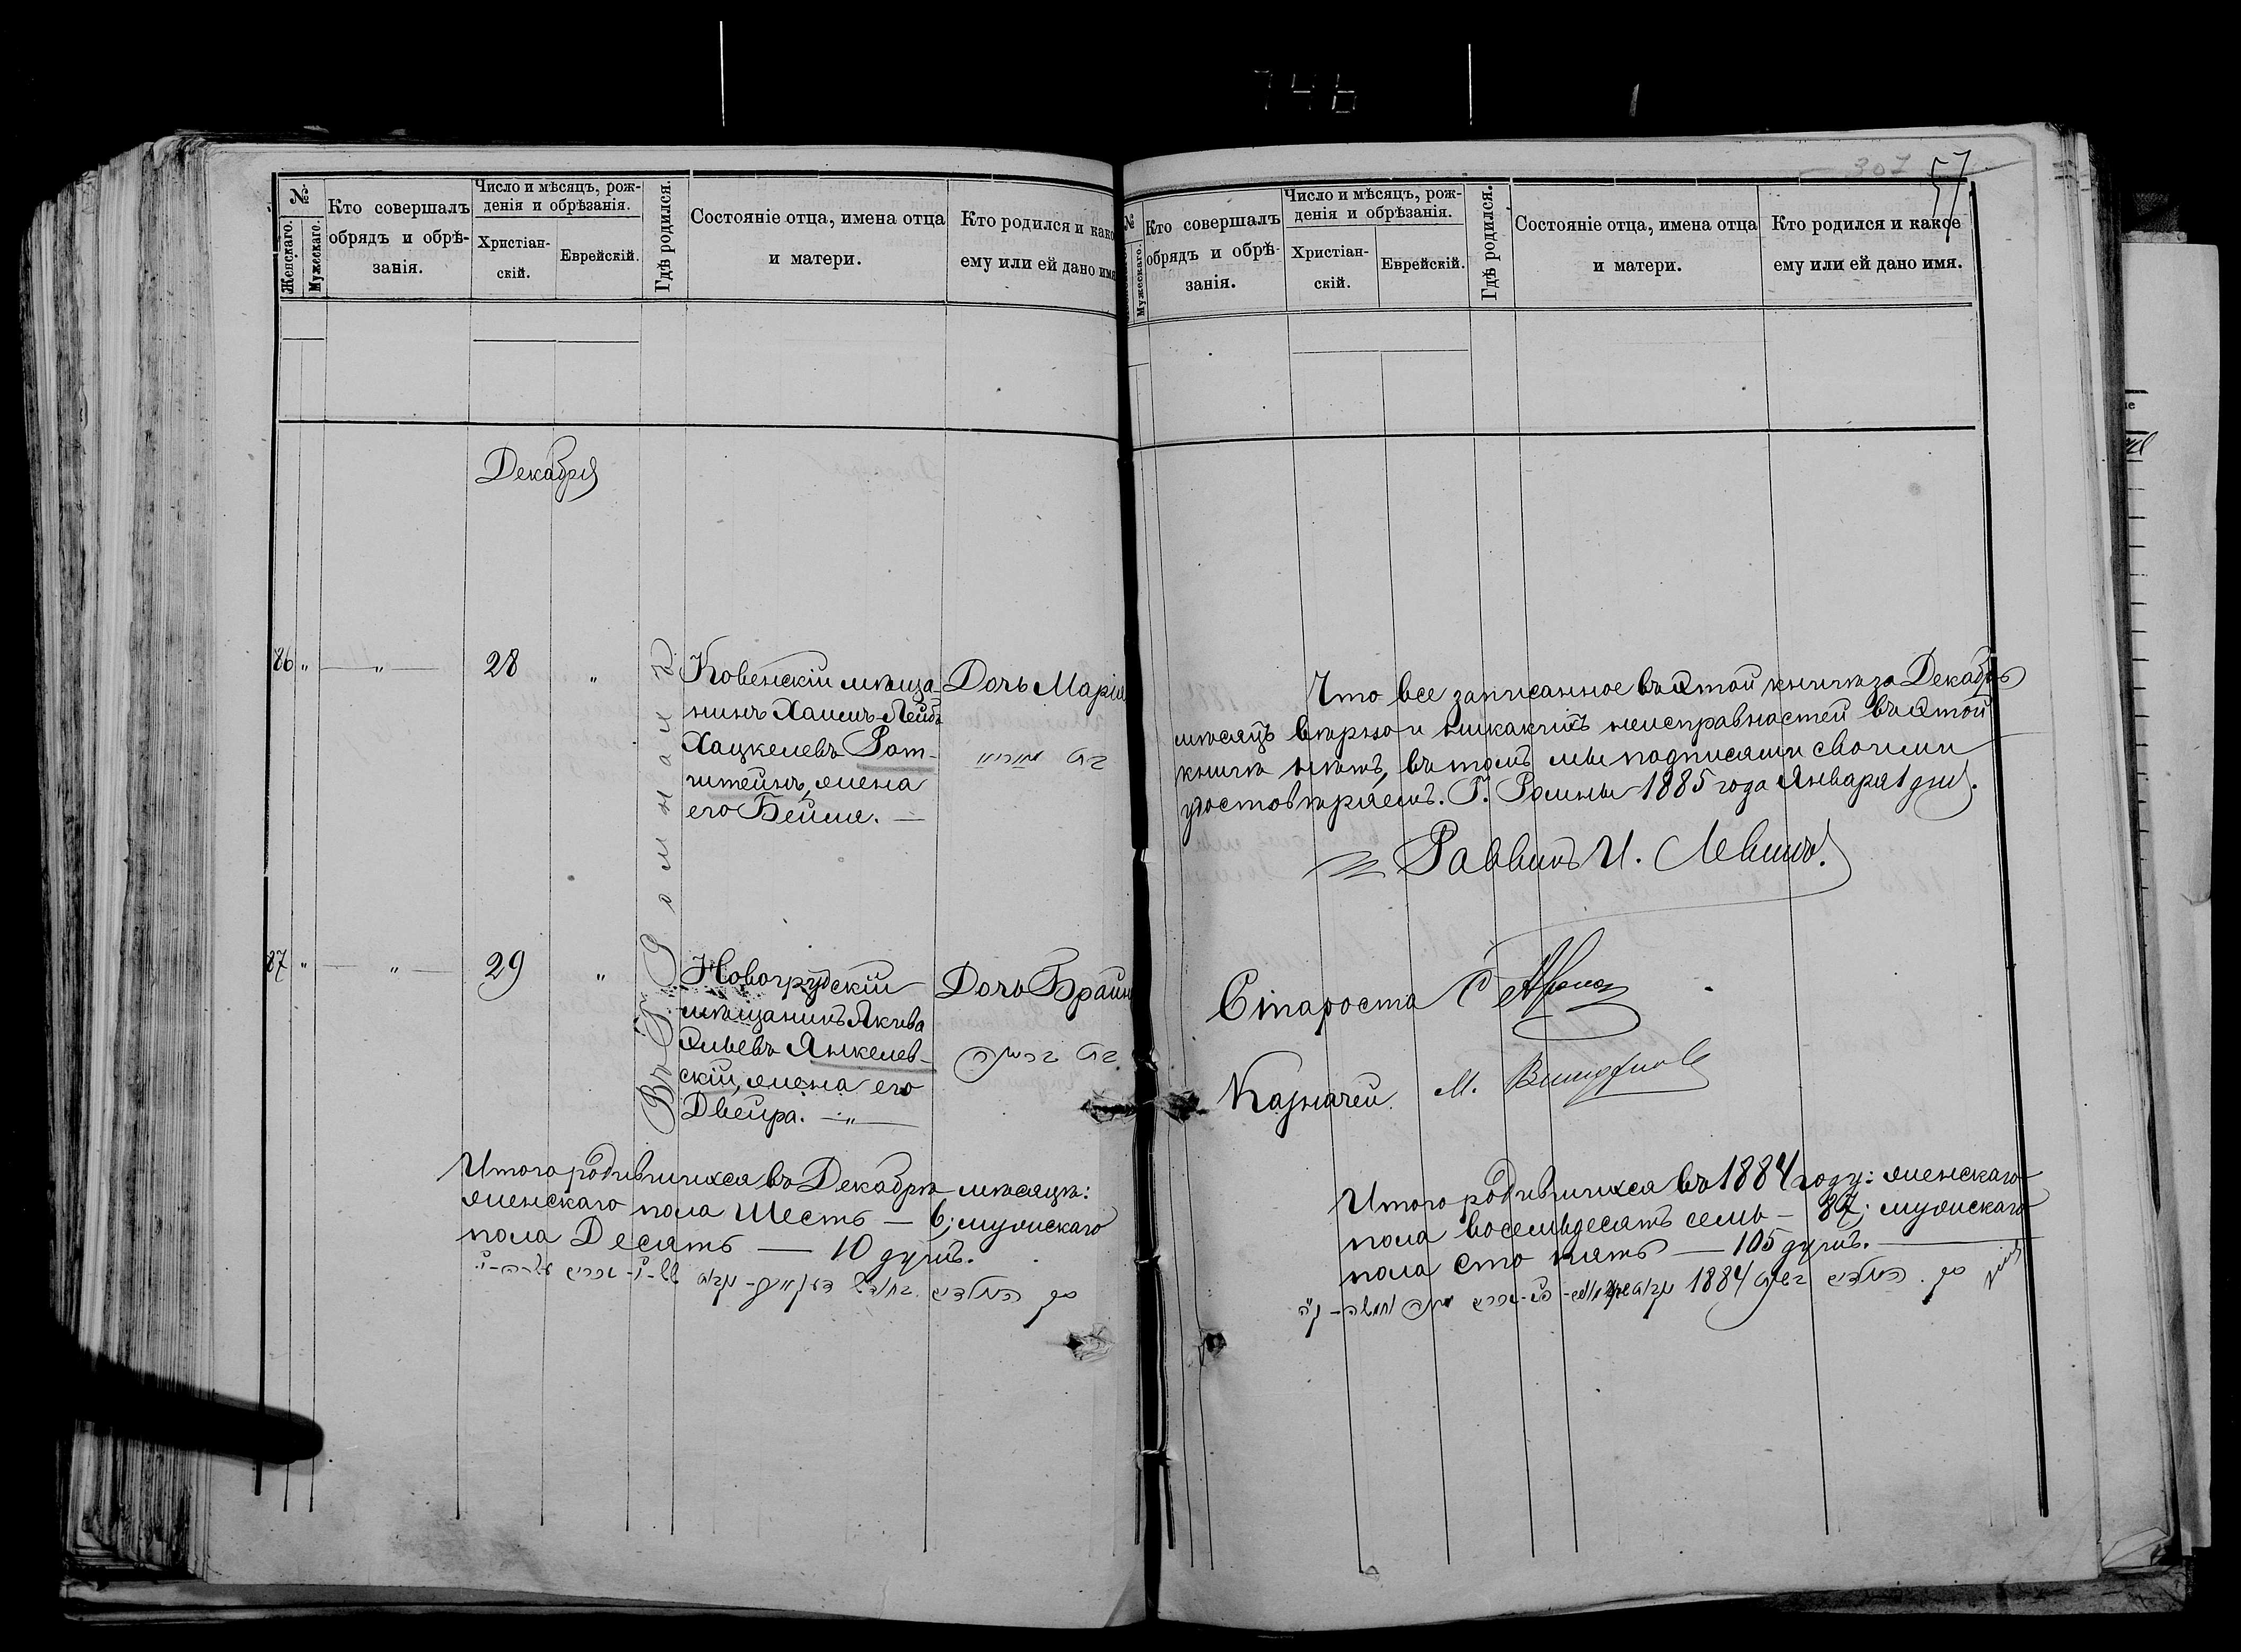 746
1
№
Женскаго.
Мужескаго.
Кто совершалъ
обрядъ и обрѣ-
занія.
Число и мѣсяцъ, рож-
денія и обрѣзанія.
Христіан-
скій.
Еврейскій.
Гдѣ родился.
Состояніе отца, имена отца
и матери.
Кто родился и како
ему или ей дано имя
Декабрь
86 " " 28 "
Ковенскій мѣща-
нинъ Хаимъ-Лейбъ
Хацкелевъ Рот-
штейнъ, жена
его Бейля.
Дочь Марія
בת
Въ
87 " " 29 "
Новогрудскій
мѣщанинъ Акива
Эльевъ Янкелев-
скій, жена его
Двейра.
Дочь Брайн
בת
Итого родившихся въ Декабрѣ мѣсяцѣ:
женскаго пола Шесть — 6; мужскаго
пола Десять — 10 душъ.
סך הנולדים
307 57
№
Мужескаго.
Кто совершалъ
обрядъ и обрѣ-
занія.
Число и мѣсяцъ, рож-
денія и обрѣзанія.
Христіан-
скій.
Еврейскій.
Гдѣ родился.
Состояніе отца, имена отца
и матери.
Кто родился и какое
ему или ей дано имя.
Что все записанное въ этой книгѣ за Декабрь
мѣсяцъ вѣрно и никакихъ неисправностей въ этой
книгѣ нѣтъ, въ томъ мы подписями своими
удостовѣряемъ. Г. Ромны 1885 года Января 1 дня.
Раввинъ И. Левинъ.
Староста
Казначей М.
Итого родившихся въ 1884 году: женскаго
пола восемьдесятъ семь — 87; мужскаго
пола сто пять — 105 душъ.
סך הנולדים בשנת 1884